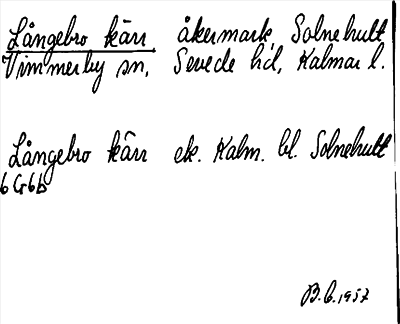 Långebro kärr, åkermark, Solnehult
Vimmerby sn, Sevede hd, Kalmar l.
Långebro kärr ek. Kalm. bl. Solnehult
6G6b
B.C. 1957